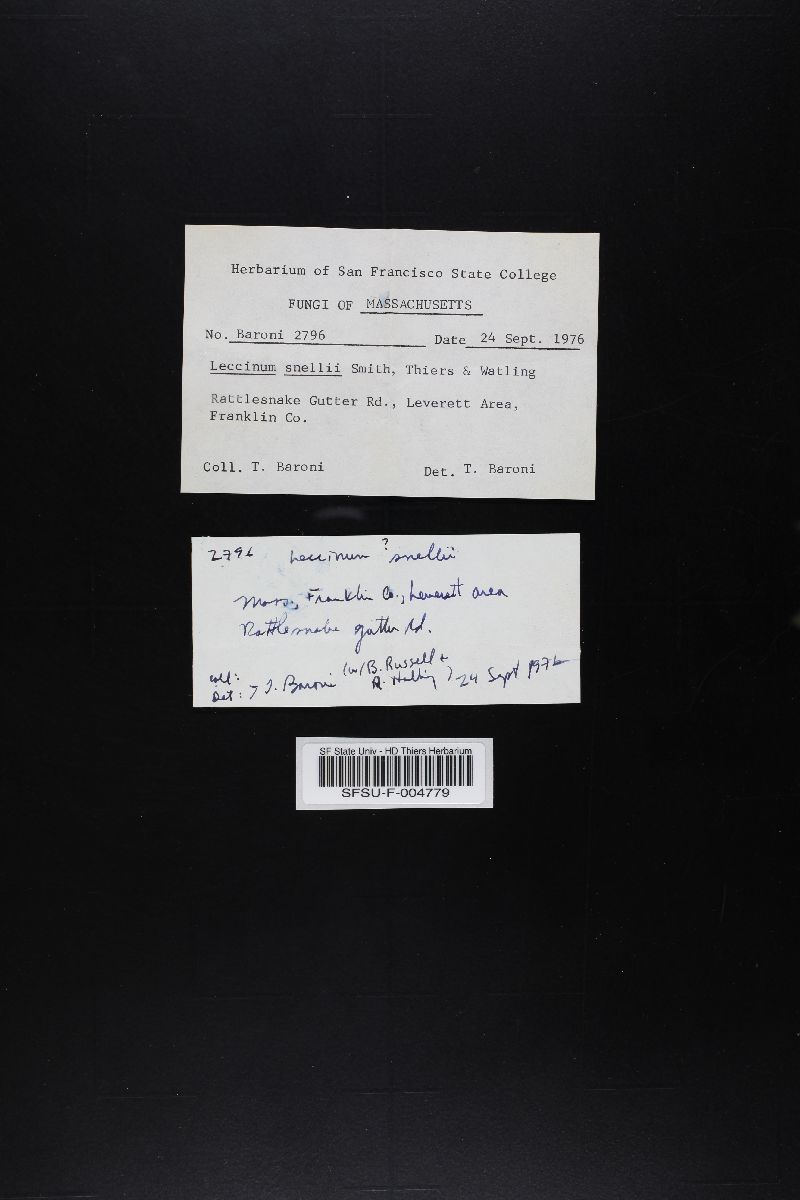 Herbarium of San Francisco State College
FUNGI OF MASSACHUSETTS
No. Baroni 2796 Date 24 Sept. 1976
Leccinum snellii Smith, Thiers & Watling
Rattlesnake Gutter Rd., Leverett Area,
Franklin Co.
Coll. T. Baroni Det. T. Baroni
2796 Leccinum ? snellii
Mass., Franklin Co., Leverett area
Rattlesnake gutter rd.
coll: Det: > T. Baroni (w/ B. Russell + R. Halling) 24 Sept 1976
SF State Univ - HD Thiers Herbarium
SFSU-F-004779